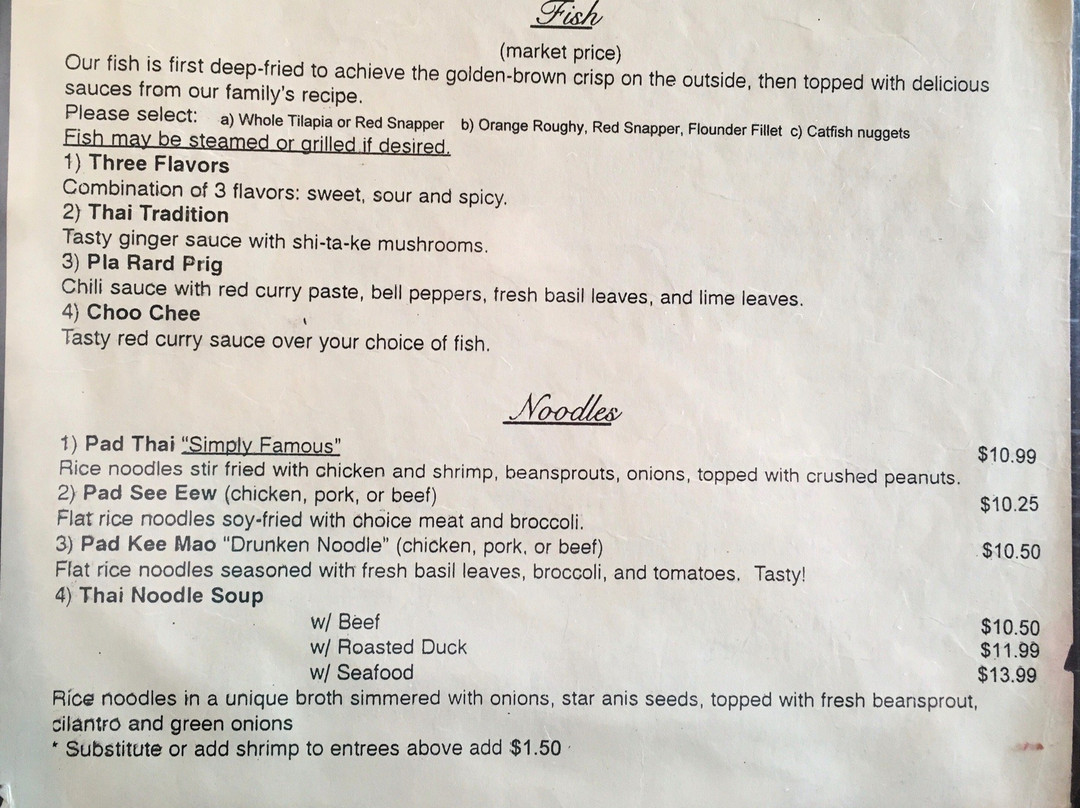 Fish
(market price)
Our fish is first deep-fried to achieve the golden-brown crisp on the outside, then topped with delicious
sauces from our family's recipe.
Please select: a) Whole Tilapia or Red Snapper b) Orange Roughy, Red Snapper, Flounder Fillet c) Catfish nuggets
Fish may be steamed or grilled if desired.
1) Three Flavors
Combination of 3 flavors: sweet, sour and spicy.
2) Thai Tradition
Tasty ginger sauce with shi-ta-ke mushrooms.
3) Pla Rard Prig
Chili sauce with red curry paste, bell peppers, fresh basil leaves, and lime leaves.
4) Choo Chee
Tasty red curry sauce over your choice of fish.
Noodles
1) Pad Thai "Simply Famous" $10.99
Rice noodles stir fried with chicken and shrimp, beansprouts, onions, topped with crushed peanuts.
2) Pad See Eew (chicken, pork, or beef) $10.25
Flat rice noodles soy-fried with choice meat and broccoli.
3) Pad Kee Mao "Drunken Noodle" (chicken, pork, or beef) $10.50
Flat rice noodles seasoned with fresh basil leaves, broccoli, and tomatoes. Tasty!
4) Thai Noodle Soup
w/ Beef $10.50
w/ Roasted Duck $11.99
w/ Seafood $13.99
Rice noodles in a unique broth simmered with onions, star anis seeds, topped with fresh beansprout,
cilantro and green onions
* Substitute or add shrimp to entrees above add $1.50